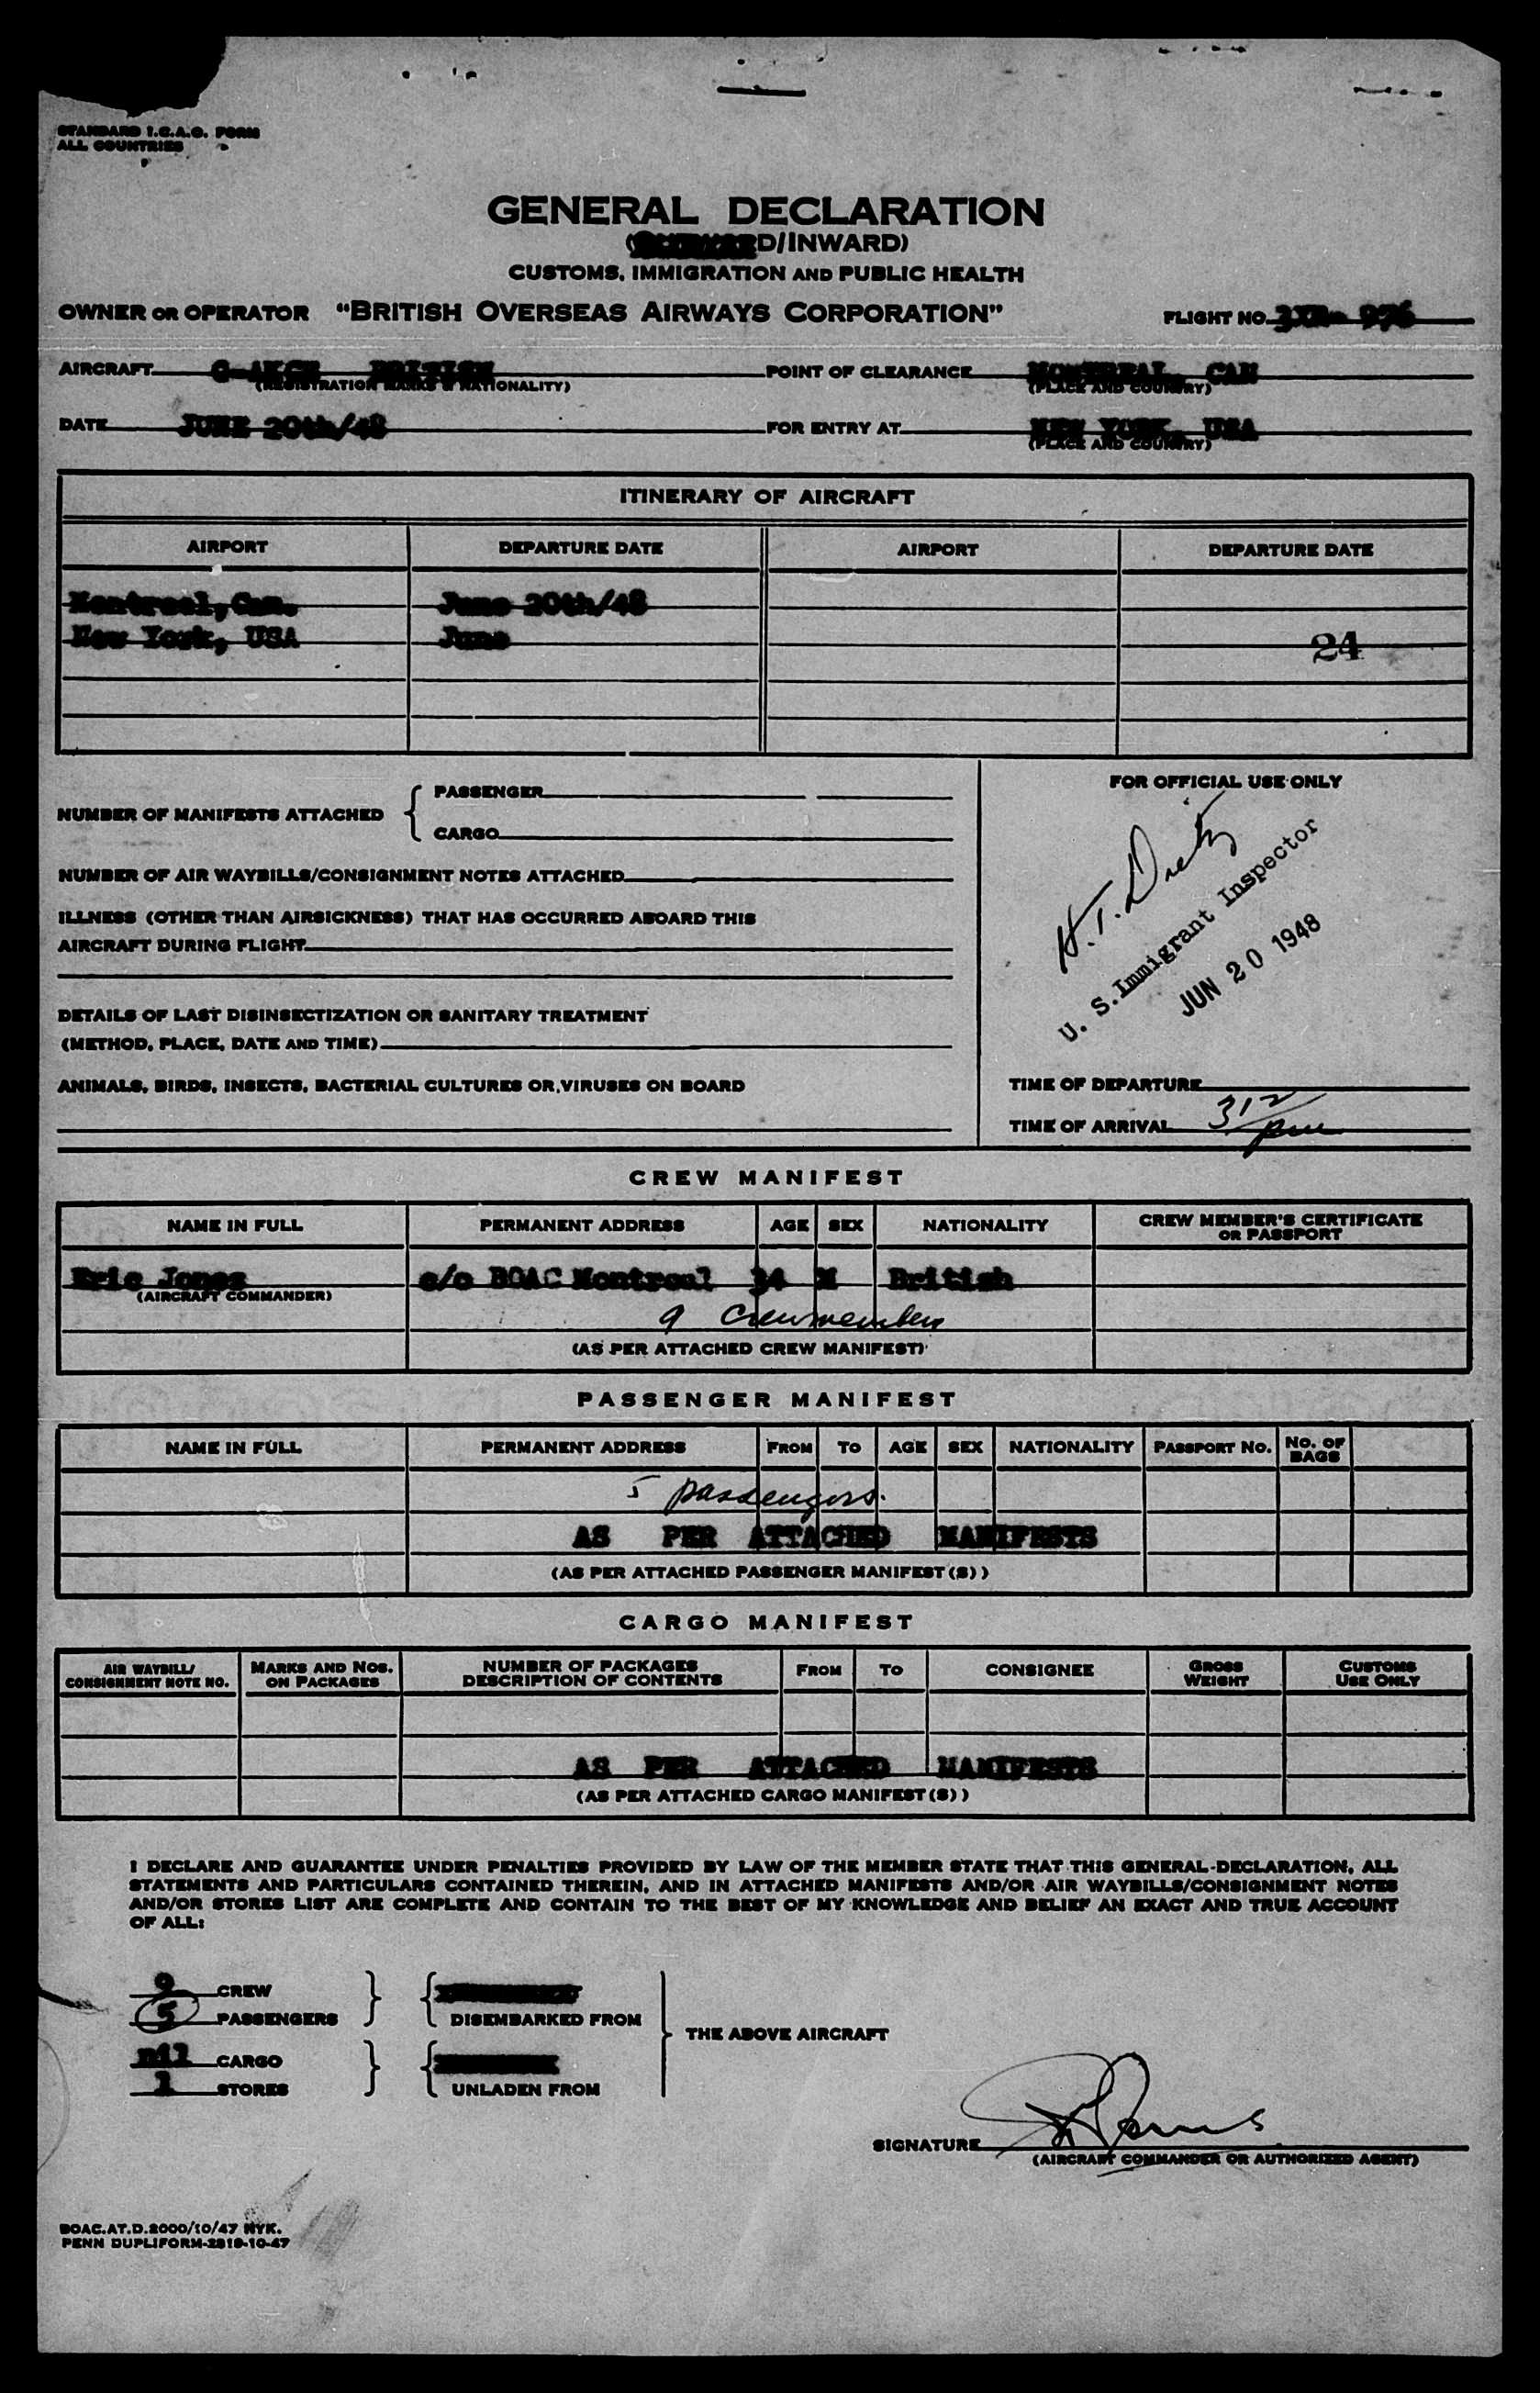 STANDARD I.C.A.O. FORM
ALL COUNTRIES
GENERAL DECLARATION
D/INWARD)
CUSTOMS, IMMIGRATION AND PUBLIC HEALTH
OWNER OR OPERATOR "BRITISH OVERSEAS AIRWAYS CORPORATION" FLIGHT NO. 976
AIRCRAFT BRITISH POINT OF CLEARANCE MONTREAL, CAN
(REGISTRATION MARKS & NATIONALITY) (PLACE AND COUNTRY)
DATE JUNE 20th/48 FOR ENTRY AT NEW YORK, USA
(PLACE AND COUNTRY)
ITINERARY OF AIRCRAFT
AIRPORT DEPARTURE DATE AIRPORT DEPARTURE DATE
Montreal, Can. June 20th/48
New York, USA June 24
NUMBER OF MANIFESTS ATTACHED { PASSENGER
CARGO
NUMBER OF AIR WAYBILLS/CONSIGNMENT NOTES ATTACHED
ILLNESS (OTHER THAN AIRSICKNESS) THAT HAS OCCURRED ABOARD THIS
AIRCRAFT DURING FLIGHT
DETAILS OF LAST DISINSECTIZATION OR SANITARY TREATMENT
(METHOD, PLACE, DATE AND TIME)
ANIMALS, BIRDS, INSECTS, BACTERIAL CULTURES OR VIRUSES ON BOARD
FOR OFFICIAL USE ONLY
H.T.
U. S. Immigrant Inspector
JUN 20 1948
TIME OF DEPARTURE
TIME OF ARRIVAL 312 pm
CREW MANIFEST
NAME IN FULL PERMANENT ADDRESS AGE SEX NATIONALITY CREW MEMBER'S CERTIFICATE
OR PASSPORT
Eric Jones c/o BOAC Montreal 34 M British
(AIRCRAFT COMMANDER)
9 Crewmembers
(AS PER ATTACHED CREW MANIFEST)
PASSENGER MANIFEST
NAME IN FULL PERMANENT ADDRESS FROM TO AGE SEX NATIONALITY PASSPORT NO. NO. OF
BAGS
5 passengers.
AS PER ATTACHED MANIFESTS
(AS PER ATTACHED PASSENGER MANIFEST(S))
CARGO MANIFEST
AIR WAYBILL/
CONSIGNMENT NOTE NO. MARKS AND NOS.
ON PACKAGES NUMBER OF PACKAGES
DESCRIPTION OF CONTENTS FROM TO CONSIGNEE GROSS
WEIGHT CUSTOMS
USE ONLY
AS PER ATTACHED MANIFESTS
(AS PER ATTACHED CARGO MANIFEST(S))
I DECLARE AND GUARANTEE UNDER PENALTIES PROVIDED BY LAW OF THE MEMBER STATE THAT THIS GENERAL DECLARATION, ALL
STATEMENTS AND PARTICULARS CONTAINED THEREIN, AND IN ATTACHED MANIFESTS AND/OR AIR WAYBILLS/CONSIGNMENT NOTES
AND/OR STORES LIST ARE COMPLETE AND CONTAIN TO THE BEST OF MY KNOWLEDGE AND BELIEF AN EXACT AND TRUE ACCOUNT
OF ALL:
9 CREW
5 PASSENGERS DISEMBARKED FROM
THE ABOVE AIRCRAFT
nil CARGO
1 STORES UNLADEN FROM
SIGNATURE
(AIRCRAFT COMMANDER OR AUTHORIZED AGENT)
BOAC.AT.D.2000/10/47 NYK.
PENN DUPLIFORM-2819-10-47